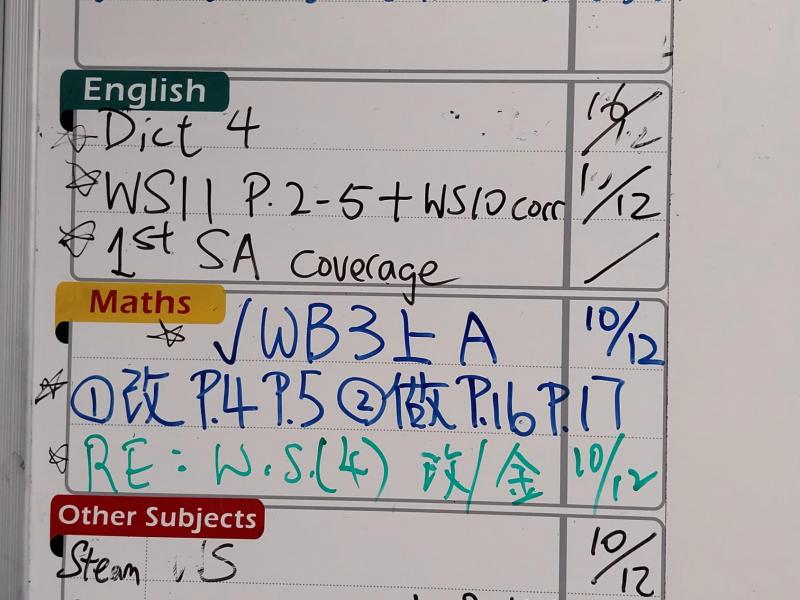 English
Dict 4
WS11 P.2-5+WS10 corr /12
1st SA coverage /
Maths
√WB3上A 10/12
①改P.4 P.5 ②做P.16 P.17
RE: W.S.(4) 改/金 10/12
Other Subjects
Steam S 10/12